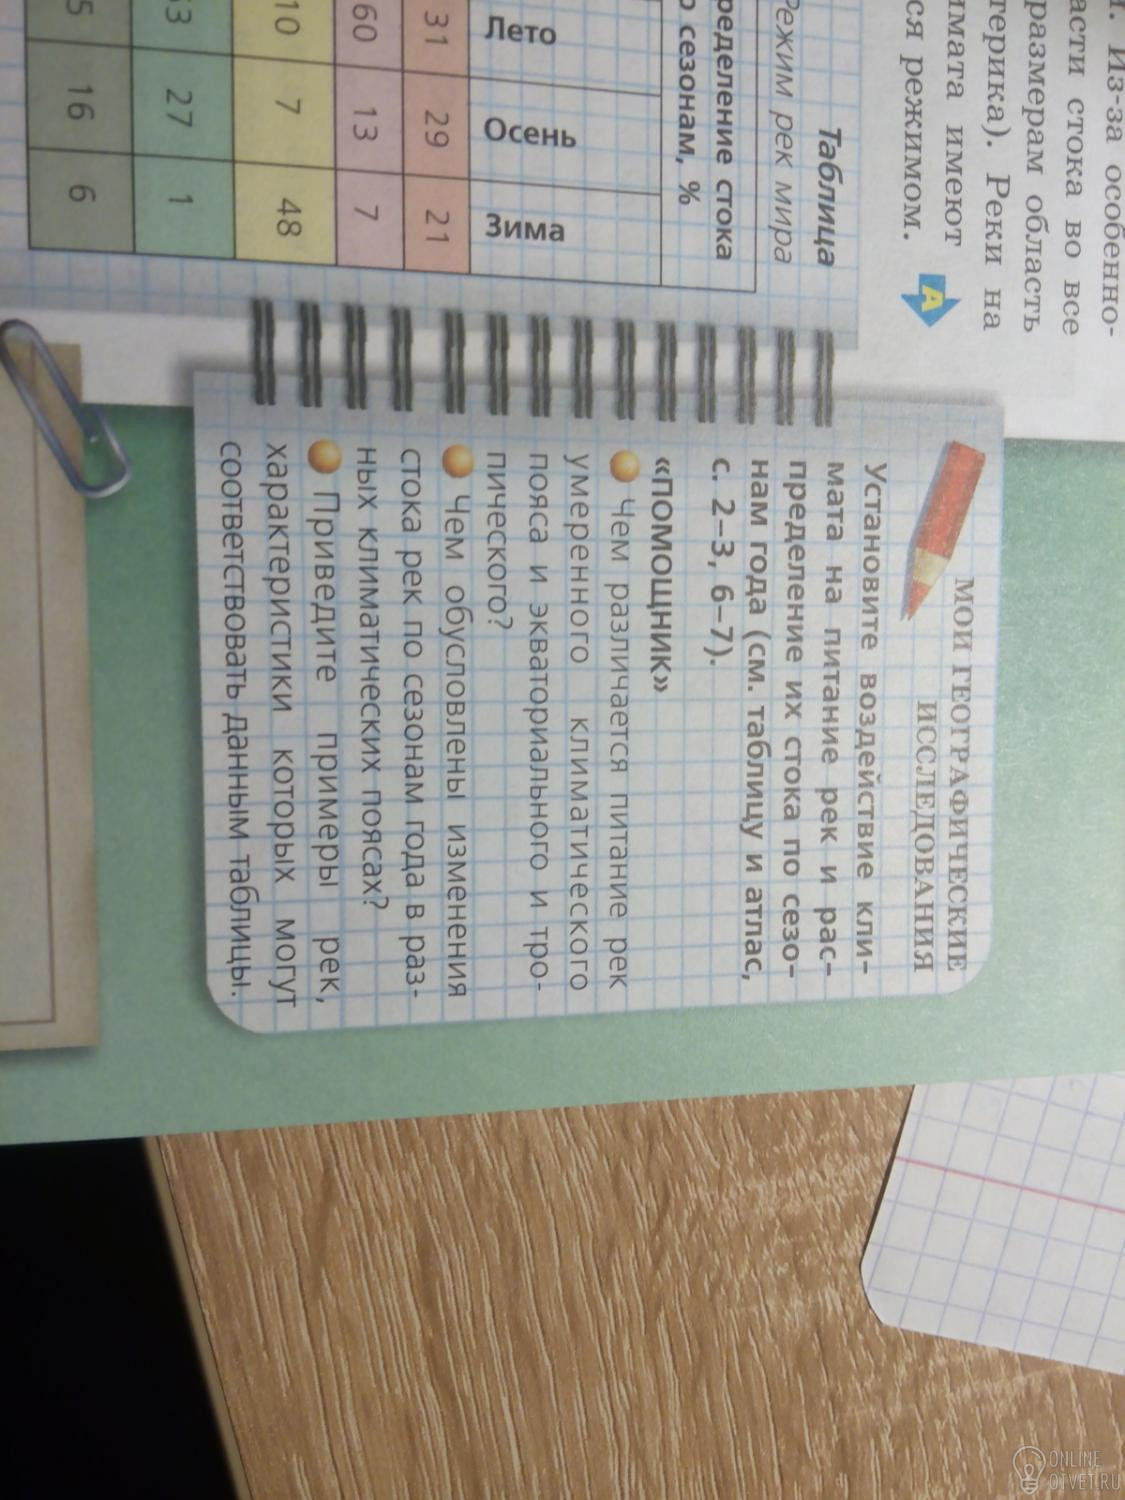 . Из-за особенно-
асти стока во все
размерам область
терика). Реки на
имата имеют
ся режимом.
А
Таблица
Режим рек мира
ределение стока
о сезонам, %
Лето Осень Зима
31 29 21
60 13 7
10 7 48
53 27 1
5 16 6
МОИ ГЕОГРАФИЧЕСКИЕ
ИССЛЕДОВАНИЯ
Установите воздействие кли-
мата на питание рек и рас-
пределение их стока по сезо-
нам года (см. таблицу и атлас,
с. 2–3, 6–7).
«ПОМОЩНИК»
Чем различается питание рек
умеренного климатического
пояса и экваториального и тро-
пического?
Чем обусловлены изменения
стока рек по сезонам года в раз-
ных климатических поясах?
Приведите примеры рек,
характеристики которых могут
соответствовать данным таблицы.
ONLINE
OTVET.RU